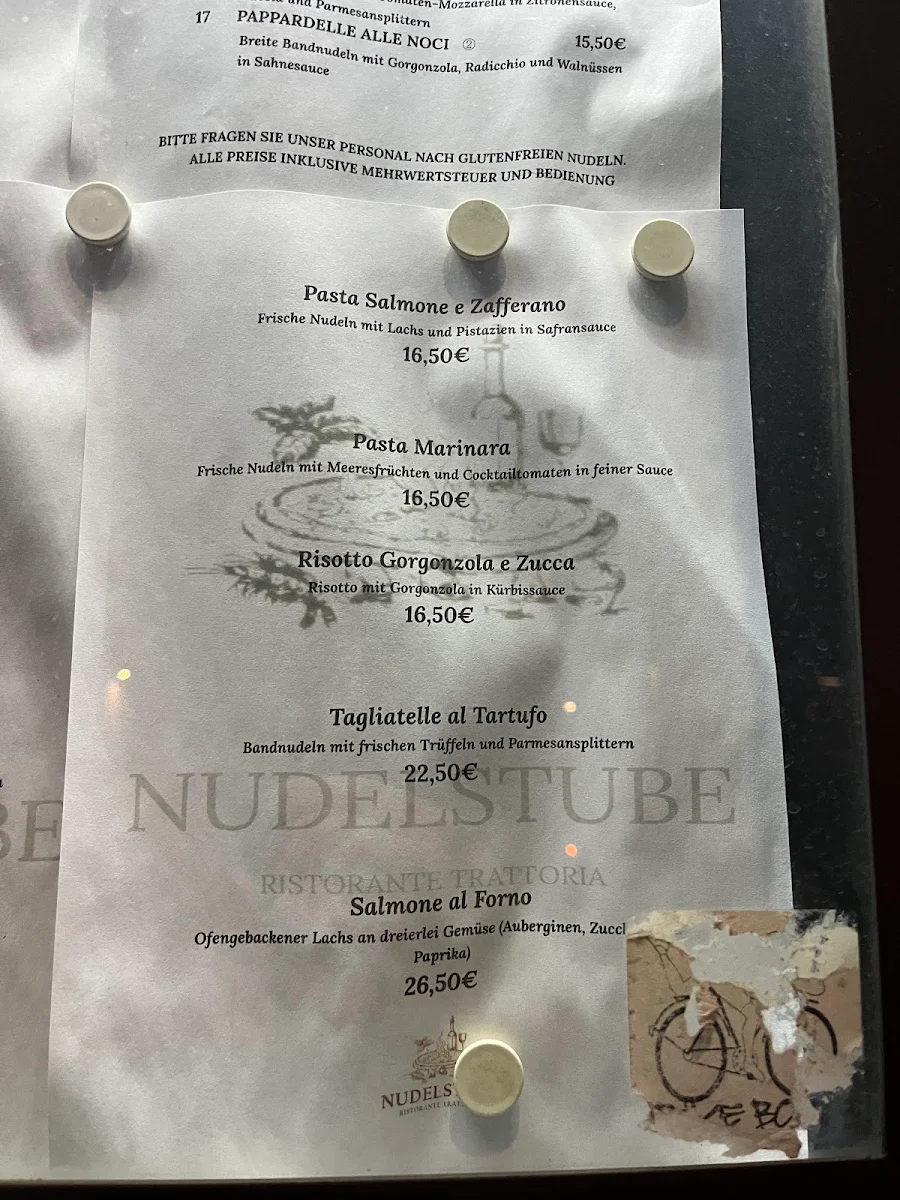 und Parmesansplittern
17 PAPPARDELLE ALLE NOCI ② 15,50€
Breite Bandnudeln mit Gorgonzola, Radicchio und Walnüssen
in Sahnesauce
BITTE FRAGEN SIE UNSER PERSONAL NACH GLUTENFREIEN NUDELN.
ALLE PREISE INKLUSIVE MEHRWERTSTEUER UND BEDIENUNG
Pasta Salmone e Zafferano
Frische Nudeln mit Lachs und Pistazien in Safransauce
16,50€
Pasta Marinara
Frische Nudeln mit Meeresfrüchten und Cocktailtomaten in feiner Sauce
16,50€
Risotto Gorgonzola e Zucca
Risotto mit Gorgonzola in Kürbissauce
16,50€
Tagliatelle al Tartufo
Bandnudeln mit frischen Trüffeln und Parmesansplittern
22,50€
NUDELSTUBE
RISTORANTE TRATTORIA
Salmone al Forno
Ofengebackener Lachs an dreierlei Gemüse (Auberginen, Zucc
Paprika)
26,50€
NUDELS
RISTORANTE